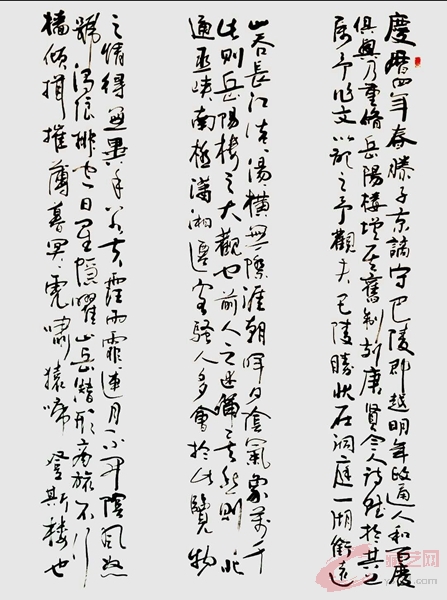 慶曆四年春滕子京謫守巴陵郡越明年政通人和百廢
俱興乃重脩岳陽樓增其舊制刻唐賢今人詩賦於其上
属予作文以記之予觀夫巴陵勝狀在洞庭一湖銜遠
山吞長江浩、湯、橫無際涯朝暉夕陰氣象萬千
此則岳陽樓之大觀也前人之述備矣然則北
通巫峽南極瀟湘遷客騷人多會於此覽物
之情得無異乎若夫霪雨霏、連月不開陰風怒
號濁浪排空日星隱曜山岳潛形商旅不行
檣傾楫摧薄暮冥、虎嘯猿啼登斯樓也